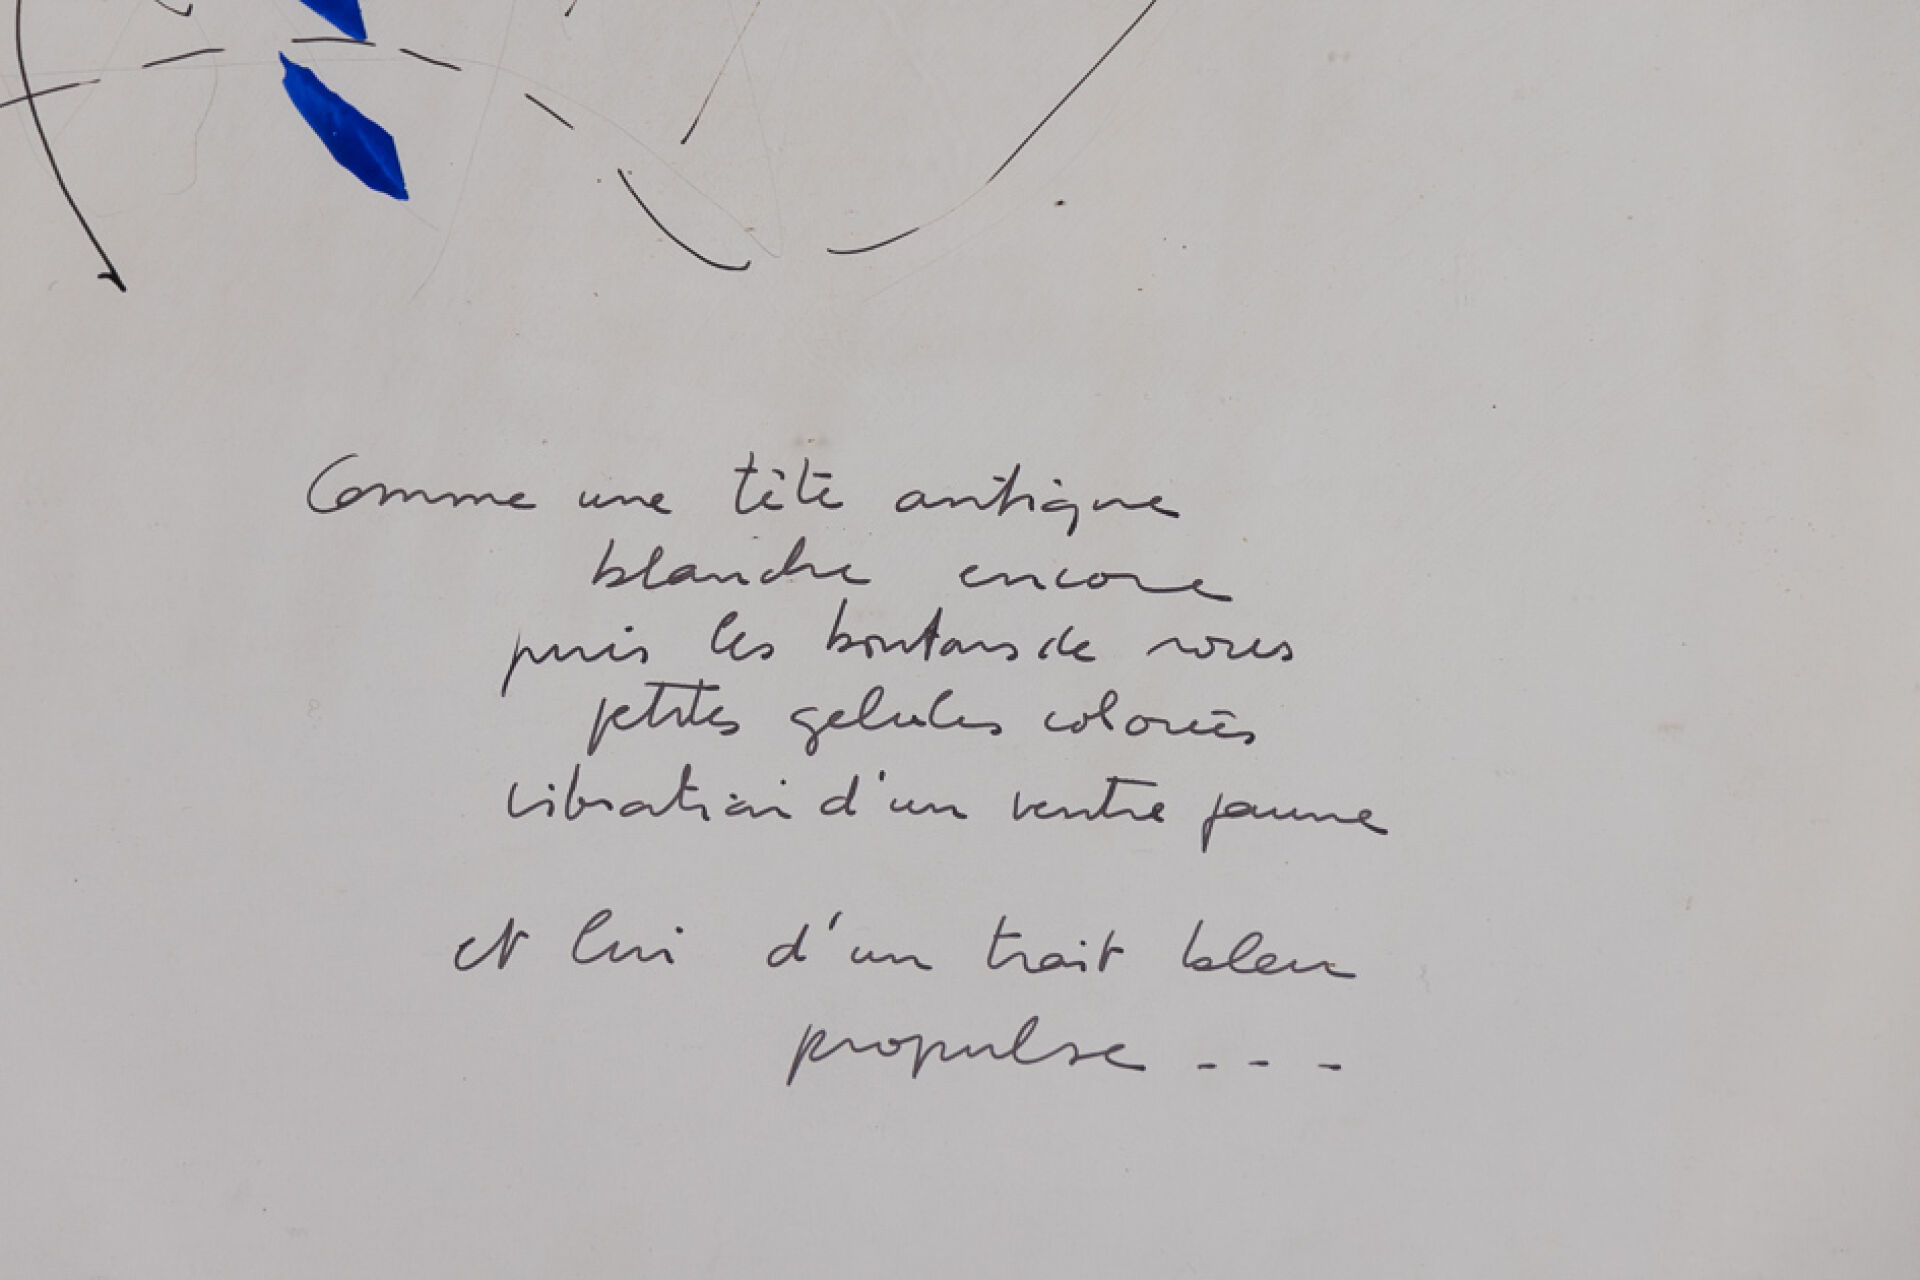 Comme une tête antique
blanche encore
puis les boutons de roses
petites gelules colorées
vibration d'un ventre jaune
et lui d'un trait bleu
propulse - - -